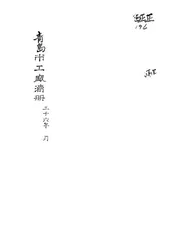 青島市工廠清冊
三十六年 月
196